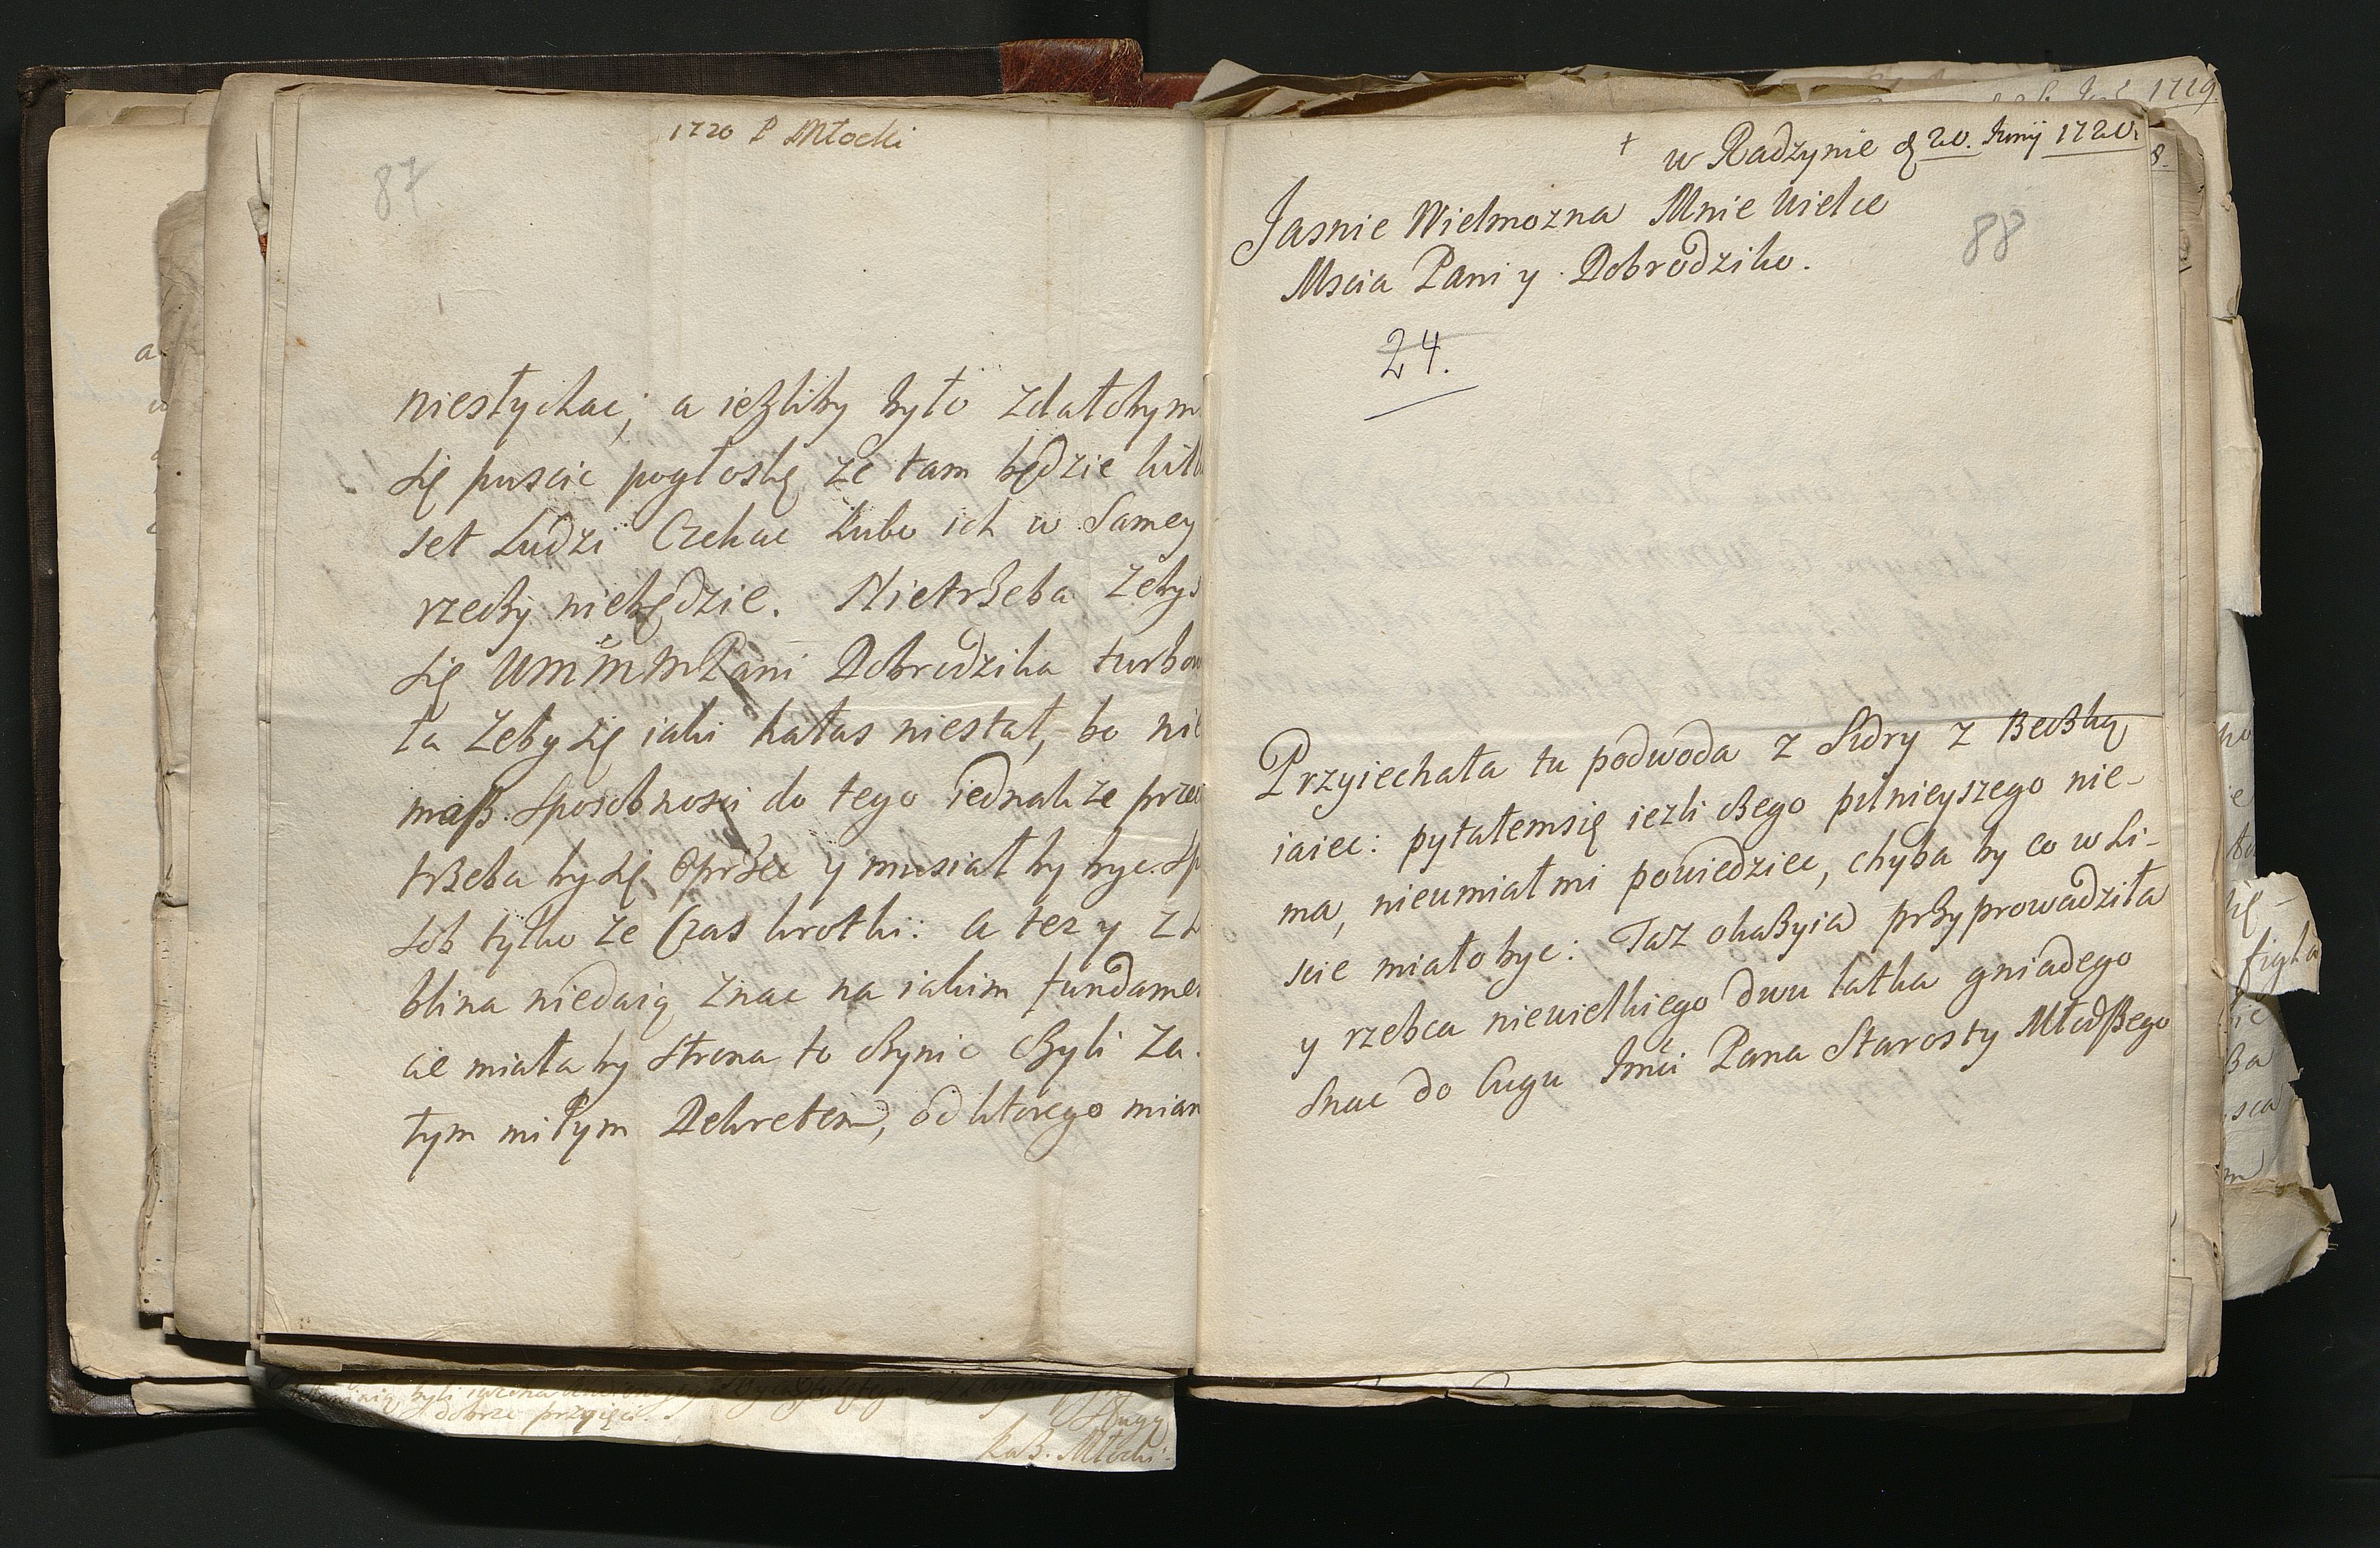 1720 P Młocki
87.
niesłychac; a ieźliby było zdałobym
się puscic pogłoskę ze tam będzie
set Ludzi Czekac Lubo ich w Samey
rzeczy niebędzie. Nietrzeba zebys
się UMMMPani Dobrodzika
ta Zeby się iaki hałas niestał, bo nie
masz Sposobnosci do tego iednakze
trzeba by się oprzec y musiałby byc
sob tylko ze Czas krotki: a tez y z
blina niedaią znac na iakim
cie miała by Strona to czynic Czyli za
tym miłym Dekretem, od ktorego
1719
+
w Radzynie d 20. Junij 1720.
8.
Jasnie Wielmozna Mnie Wielce
Mscia Pani y Dobrodziko.
88
24.
Przyiechała tu podwoda z Sidry z Beczką
iaiec: pytałemsię iezli czego pilnieyszego nie-
ma, nieumiał mi powiedziec, chyba by co w Li-
scie miało byc: Taz okazyia przyprowadziła
y rzebca niewielkiego dwu latka gniadego
Snac do Cugu Jmci Pana Starosty Młodszego
dobrze przyięci.
Sługą
Kaz. Młocki